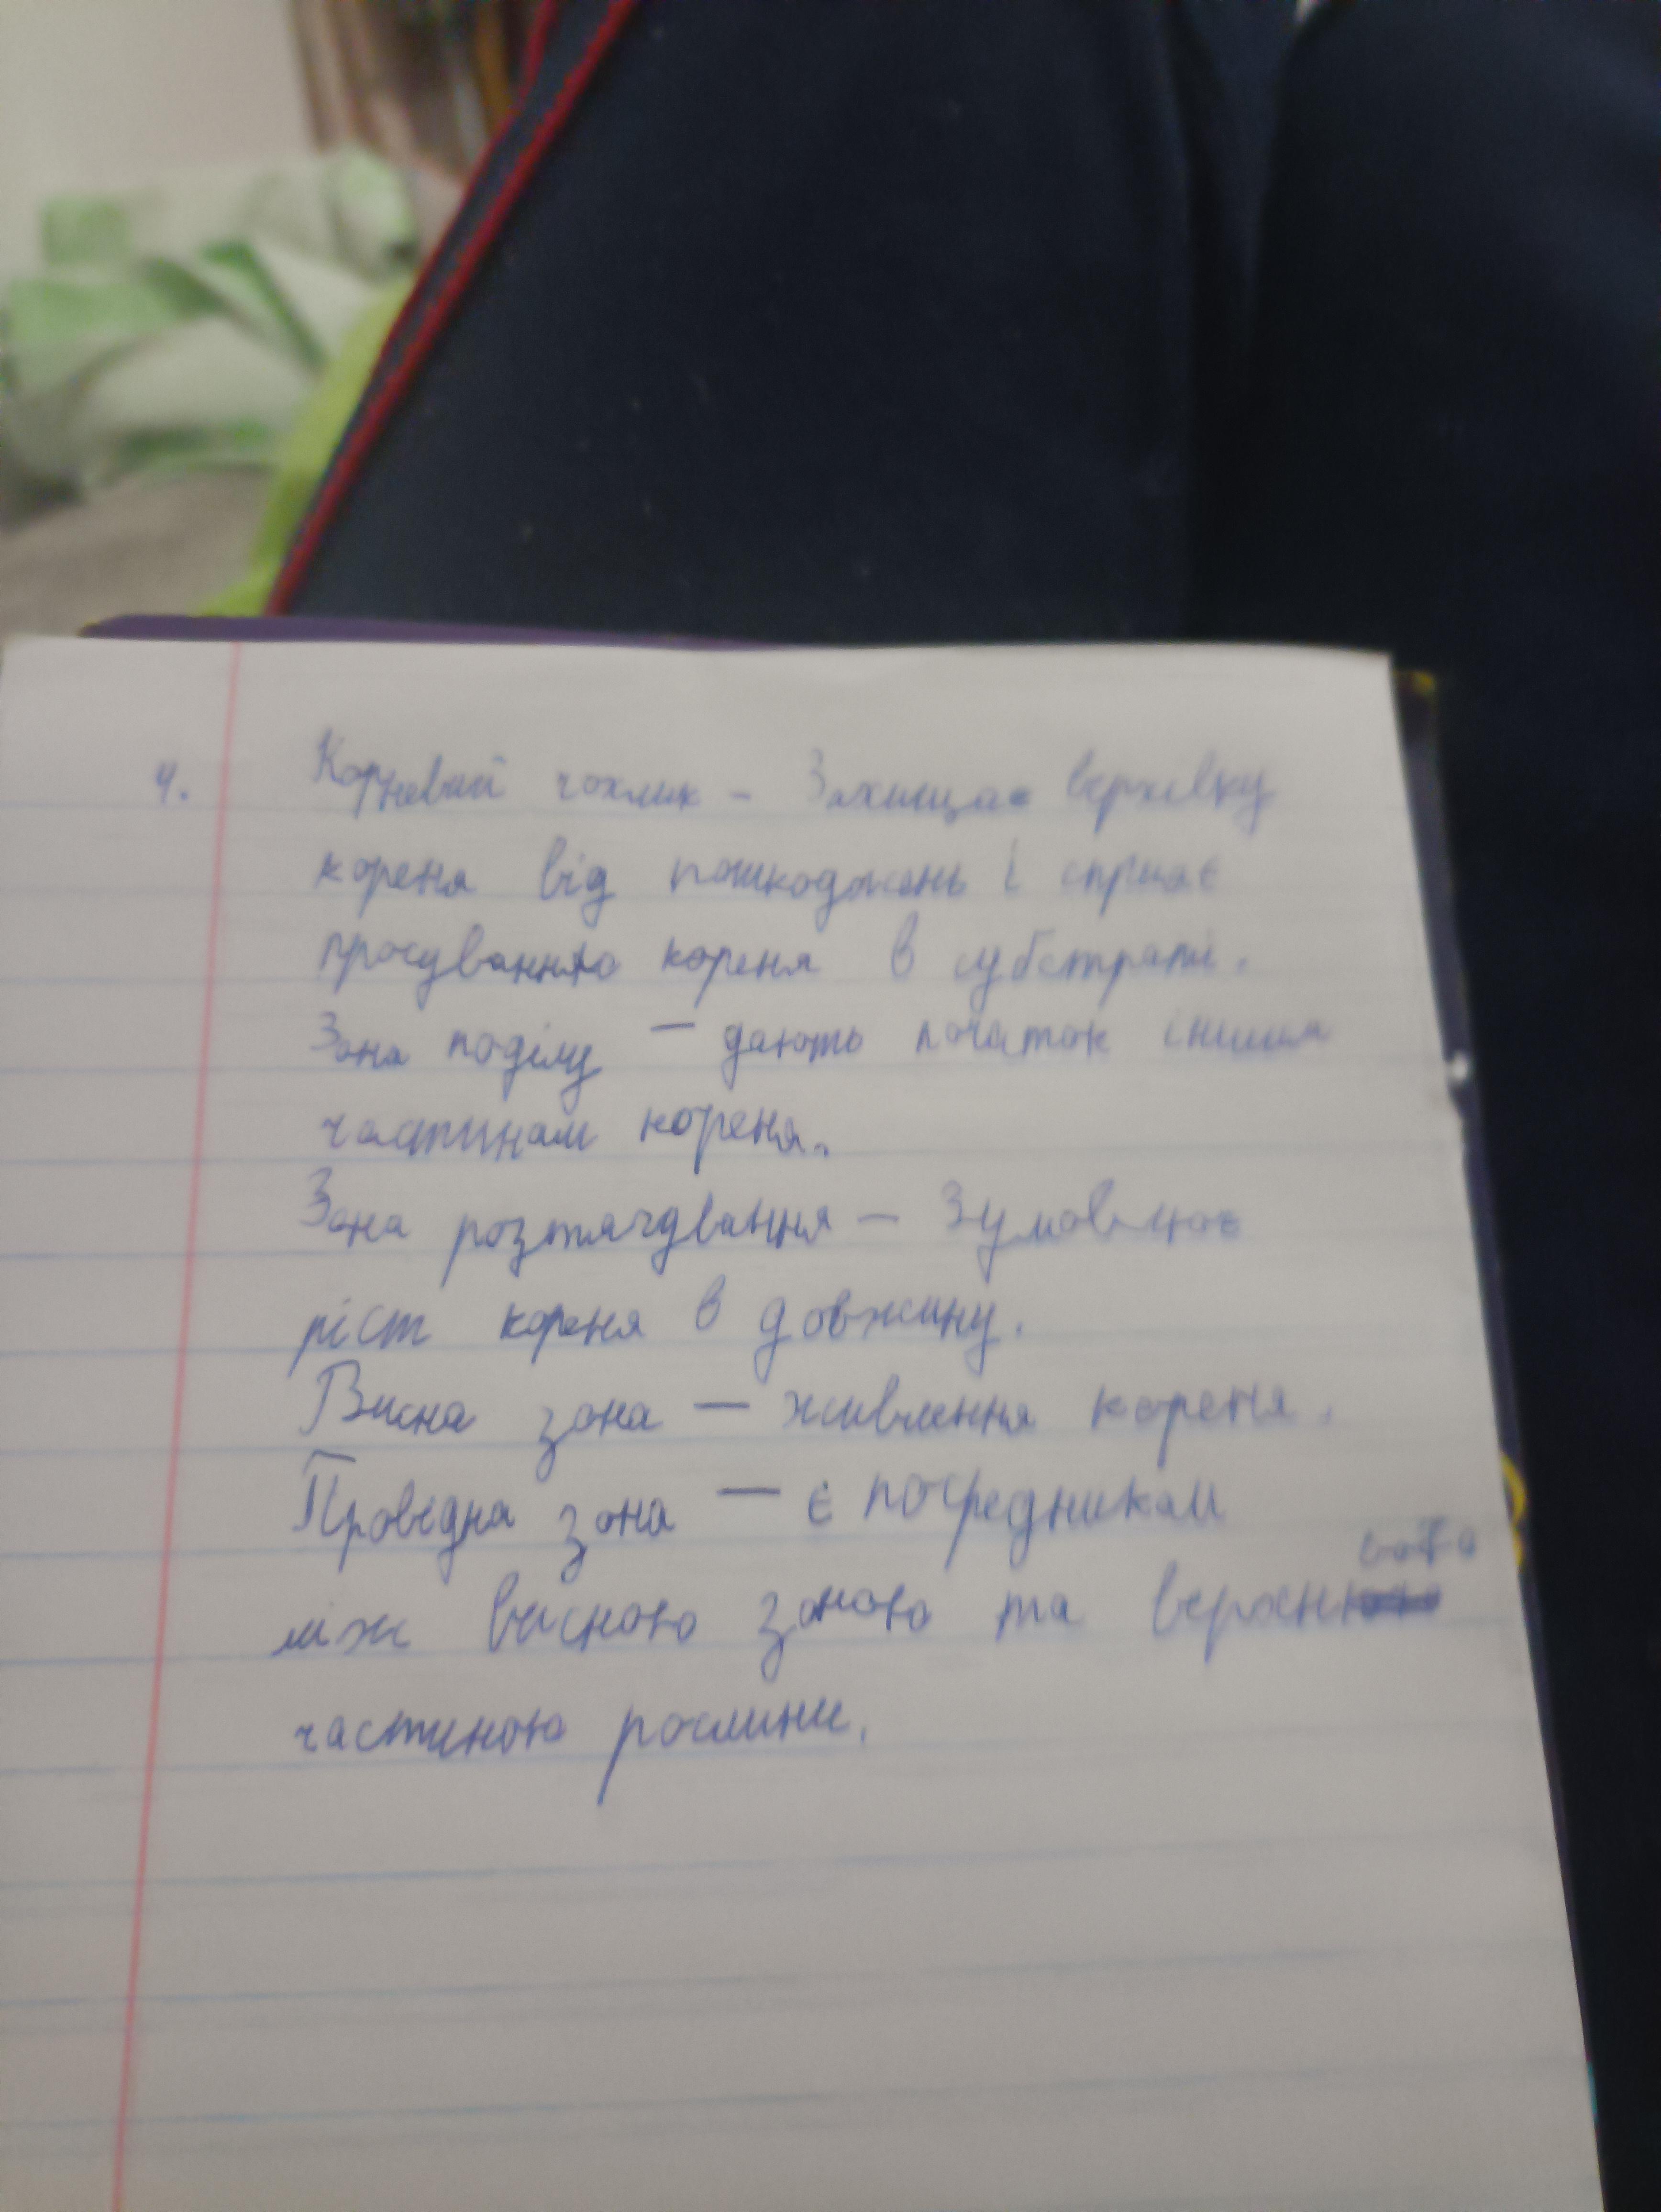 4. Корневий чохлик - Захищає верхівку
кореня від пошкоджень і сприяє
просуванню кореня в субстраті.
Зона поділу — дають початок іншим
частинам кореня.
Зона розтягування — Зумовлює
ріст кореня в довжину.
Висна зона — живлення кореня.
Провідна зона — є посредником
між висною зоною та верхнь
частиною рослини.